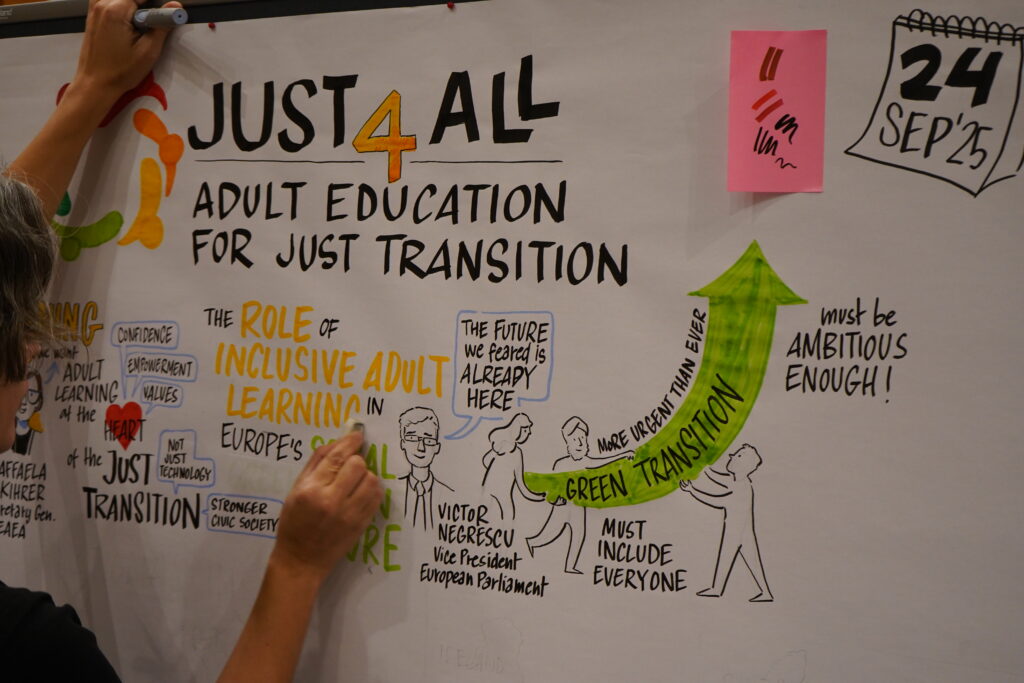 JUST 4 ALL
ADULT EDUCATION
FOR JUST TRANSITION
24
SEP'25
CONFIDENCE
EMPOWERMENT
VALUES
ADULT
LEARNING
at the
HEART
of the JUST
TRANSITION
NOT
JUST
TECHNOLOGY
STRONGER
CIVIC SOCIETY
AFFAELA
KIHRER
retary Gen.
EAEA
THE ROLE OF
INCLUSIVE ADULT
LEARNING IN
EUROPE'S
THE FUTURE
we feared is
ALREADY
HERE
VICTOR
NEGRESCU
Vice President
European Parliament
MORE URGENT THAN EVER
GREEN TRANSITION
MUST
INCLUDE
EVERYONE
must be
AMBITIOUS
ENOUGH!